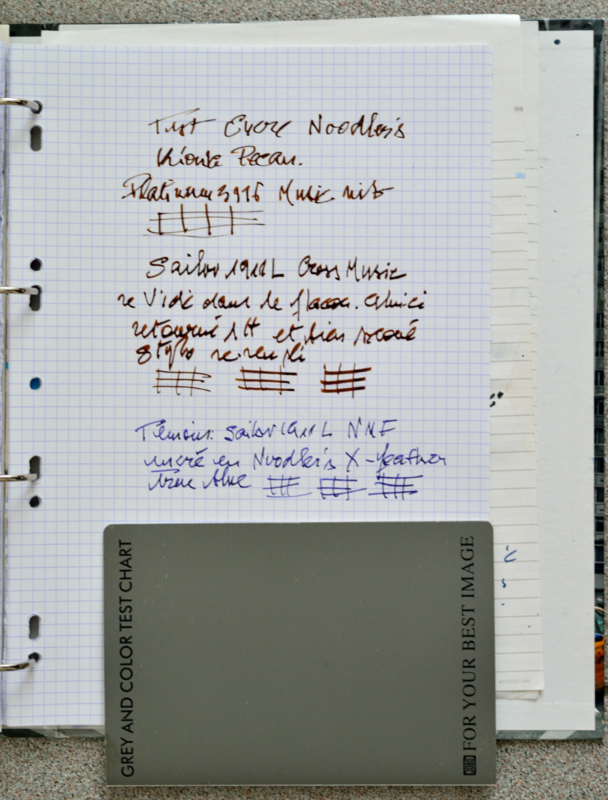 Test Encre Noodler's
Kiowa Pecan.
Platinum 3776 Music nib
Sailor 1911L Cross Music
se Vide dans le flacon. Celui ci
retourné 1H et bien secoué
Stylo re rempli
Témoin: Sailor 1911L NMF
encré en Noodler's X-feather
blue
GREY AND COLOR TEST CHART
FOR YOUR BEST IMAGE